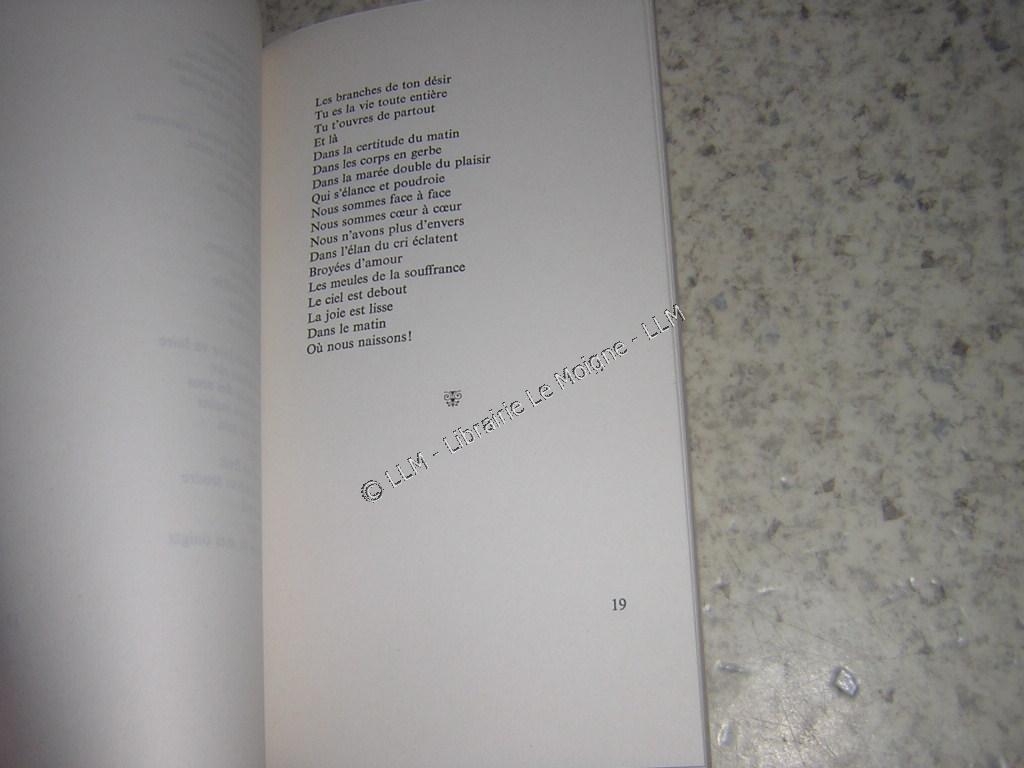 Les branches de ton désir
Tu es la vie toute entière
Tu t'ouvres de partout
Et là
Dans la certitude du matin
Dans les corps en gerbe
Dans la marée double du plaisir
Qui s'élance et poudroie
Nous sommes face à face
Nous sommes cœur à cœur
Nous n'avons plus d'envers
Dans l'élan du cri éclatent
Broyées d'amour
Les meules de la souffrance
Le ciel est debout
La joie est lisse
Dans le matin
Où nous naissons!
© LLM - Librairie Le Moigne - LLM
19